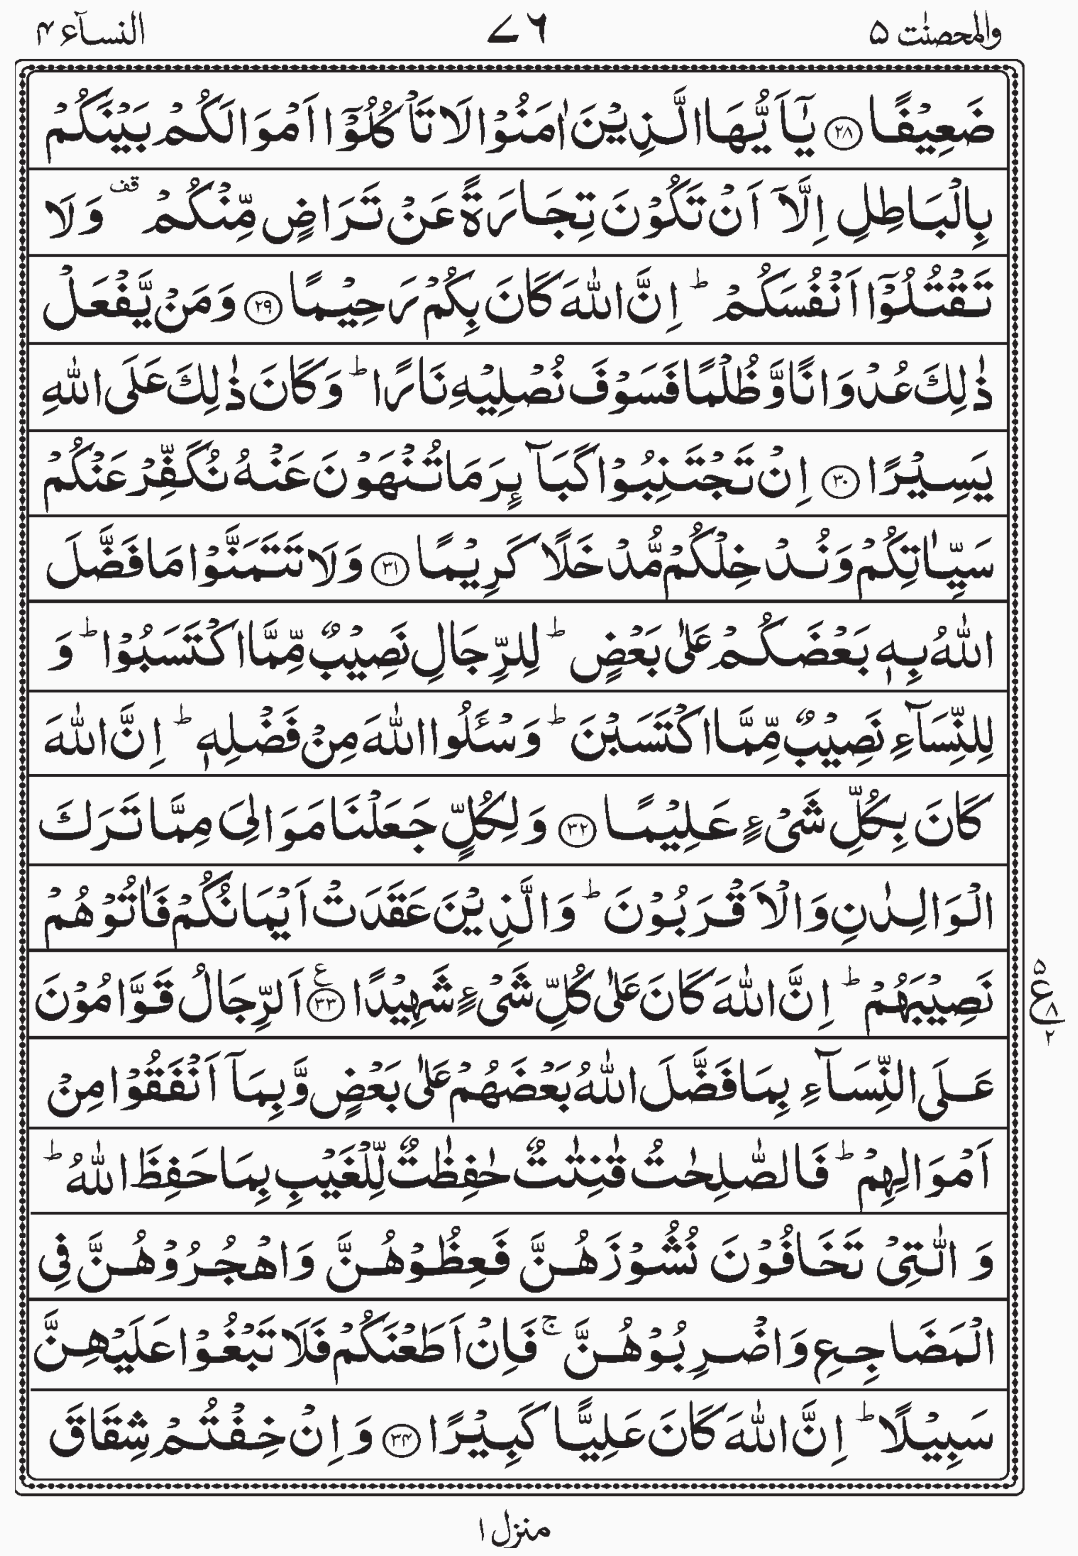 والمحصنت ۵ ۷۶ النسآء ۴
ضَعِيْفًا ﴿۲۸﴾ يٰۤاَيُّهَا الَّذِيْنَ اٰمَنُوْا لَا تَاْكُلُوْۤا اَمْوَالَكُمْ بَيْنَكُمْ
بِالْبَاطِلِ اِلَّاۤ اَنْ تَكُوْنَ تِجَارَةً عَنْ تَرَاضٍ مِّنْكُمْ ۟قف وَلَا
تَقْتُلُوْۤا اَنْفُسَكُمْ ؕ اِنَّ اللّٰهَ كَانَ بِكُمْ رَحِيْمًا ﴿۲۹﴾ وَمَنْ يَّفْعَلْ
ذٰلِكَ عُدْوَانًا وَّظُلْمًا فَسَوْفَ نُصْلِيْهِ نَارًا ؕ وَكَانَ ذٰلِكَ عَلَى اللّٰهِ
يَسِيْرًا ﴿۳۰﴾ اِنْ تَجْتَنِبُوْا كَبَآئِرَ مَا تُنْهَوْنَ عَنْهُ نُكَفِّرْ عَنْكُمْ
سَيِّاٰتِكُمْ وَنُدْخِلْكُمْ مُّدْخَلًا كَرِيْمًا ﴿۳۱﴾ وَلَا تَتَمَنَّوْا مَا فَضَّلَ
اللّٰهُ بِهٖ بَعْضَكُمْ عَلٰى بَعْضٍ ؕ لِلرِّجَالِ نَصِيْبٌ مِّمَّا اكْتَسَبُوْا ؕ وَ
لِلنِّسَآءِ نَصِيْبٌ مِّمَّا اكْتَسَبْنَ ؕ وَسْئَلُوا اللّٰهَ مِنْ فَضْلِهٖ ؕ اِنَّ اللّٰهَ
كَانَ بِكُلِّ شَىْءٍ عَلِيْمًا ﴿۳۲﴾ وَلِكُلٍّ جَعَلْنَا مَوَالِىَ مِمَّا تَرَكَ
الْوَالِدٰنِ وَالْاَقْرَبُوْنَ ؕ وَالَّذِيْنَ عَقَدَتْ اَيْمَانُكُمْ فَاٰتُوْهُمْ
نَصِيْبَهُمْ ؕ اِنَّ اللّٰهَ كَانَ عَلٰى كُلِّ شَىْءٍ شَهِيْدًا ﴿۳۳﴾ع اَلرِّجَالُ قَوَّامُوْنَ
۵ ع ۸ ۲
عَلَى النِّسَآءِ بِمَا فَضَّلَ اللّٰهُ بَعْضَهُمْ عَلٰى بَعْضٍ وَّبِمَاۤ اَنْفَقُوْا مِنْ
اَمْوَالِهِمْ ؕ فَالصّٰلِحٰتُ قٰنِتٰتٌ حٰفِظٰتٌ لِّلْغَيْبِ بِمَا حَفِظَ اللّٰهُ ؕ
وَ الّٰتِىْ تَخَافُوْنَ نُشُوْزَهُنَّ فَعِظُوْهُنَّ وَاهْجُرُوْهُنَّ فِى
الْمَضَاجِعِ وَاضْرِبُوْهُنَّ ۚ فَاِنْ اَطَعْنَكُمْ فَلَا تَبْغُوْا عَلَيْهِنَّ
سَبِيْلًا ؕ اِنَّ اللّٰهَ كَانَ عَلِيًّا كَبِيْرًا ﴿۳۴﴾ وَاِنْ خِفْتُمْ شِقَاقَ
منزل ۱